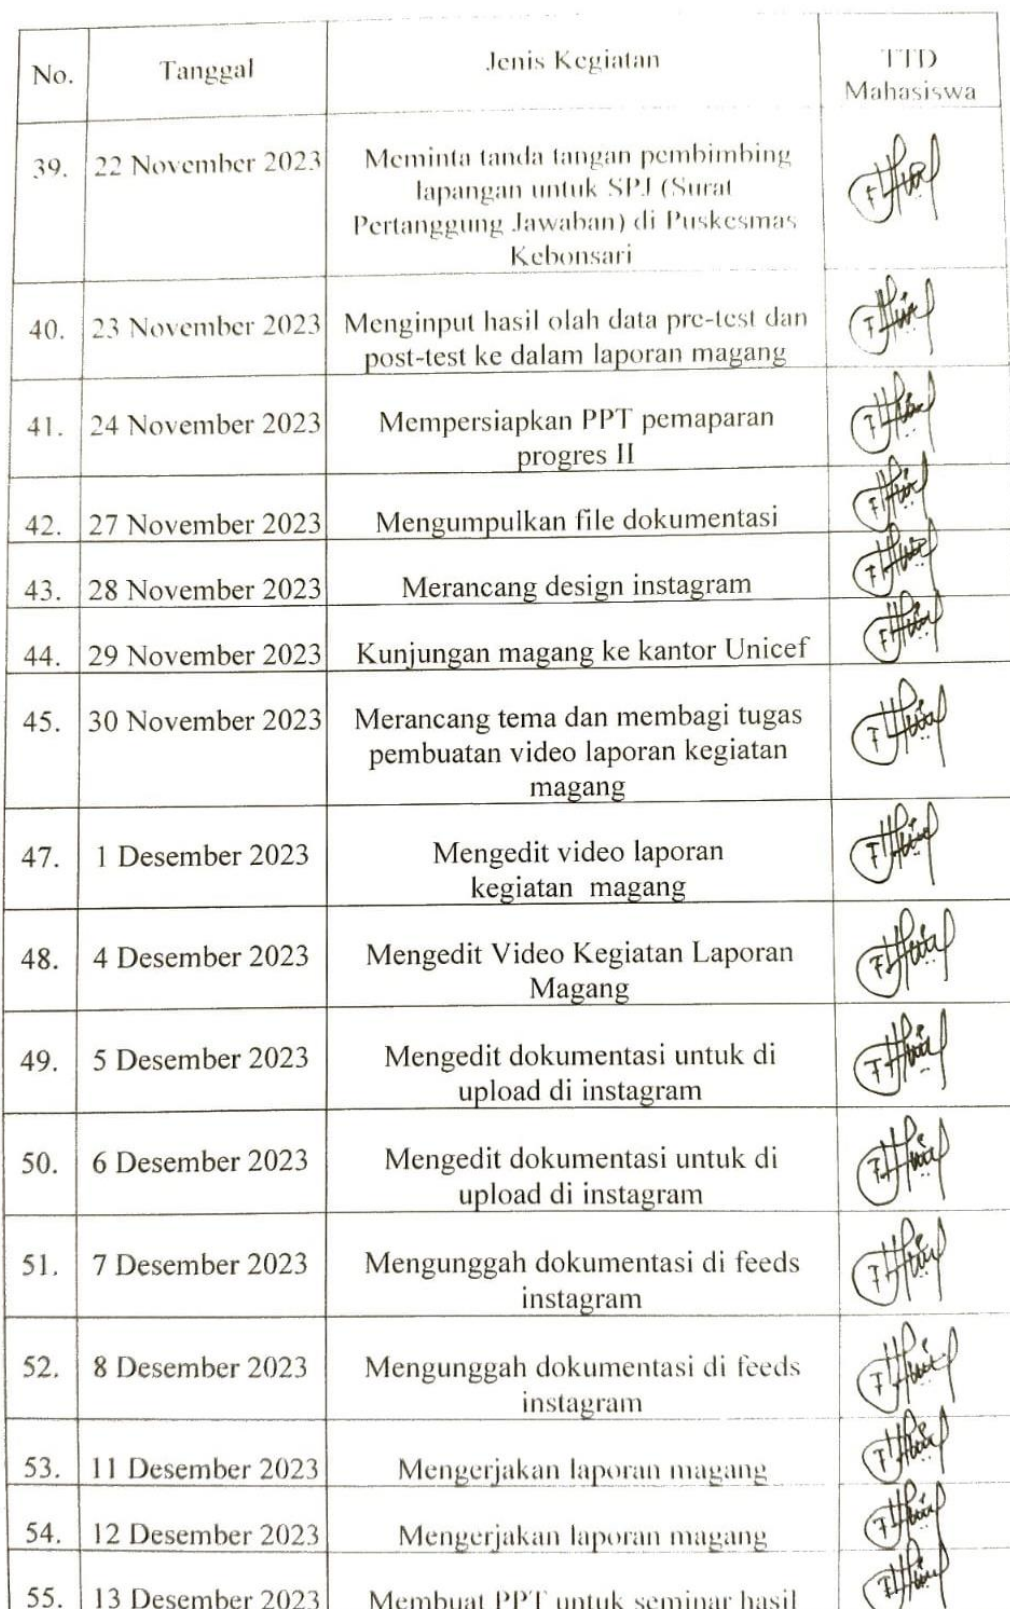 No. Tanggal Jenis Kegiatan TTD
Mahasiswa
39. 22 November 2023 Meminta tanda tangan pembimbing
lapangan untuk SPJ (Surat
Pertanggung Jawaban) di Puskesmas
Kebonsari
40. 23 November 2023 Menginput hasil olah data pre-test dan
post-test ke dalam laporan magang
41. 24 November 2023 Mempersiapkan PPT pemaparan
progres II
42. 27 November 2023 Mengumpulkan file dokumentasi
43. 28 November 2023 Merancang design instagram
44. 29 November 2023 Kunjungan magang ke kantor Unicef
45. 30 November 2023 Merancang tema dan membagi tugas
pembuatan video laporan kegiatan
magang
47. 1 Desember 2023 Mengedit video laporan
kegiatan magang
48. 4 Desember 2023 Mengedit Video Kegiatan Laporan
Magang
49. 5 Desember 2023 Mengedit dokumentasi untuk di
upload di instagram
50. 6 Desember 2023 Mengedit dokumentasi untuk di
upload di instagram
51. 7 Desember 2023 Mengunggah dokumentasi di feeds
instagram
52. 8 Desember 2023 Mengunggah dokumentasi di feeds
instagram
53. 11 Desember 2023 Mengerjakan laporan magang
54. 12 Desember 2023 Mengerjakan laporan magang
55. 13 Desember 2023 Membuat PPT untuk seminar hasil